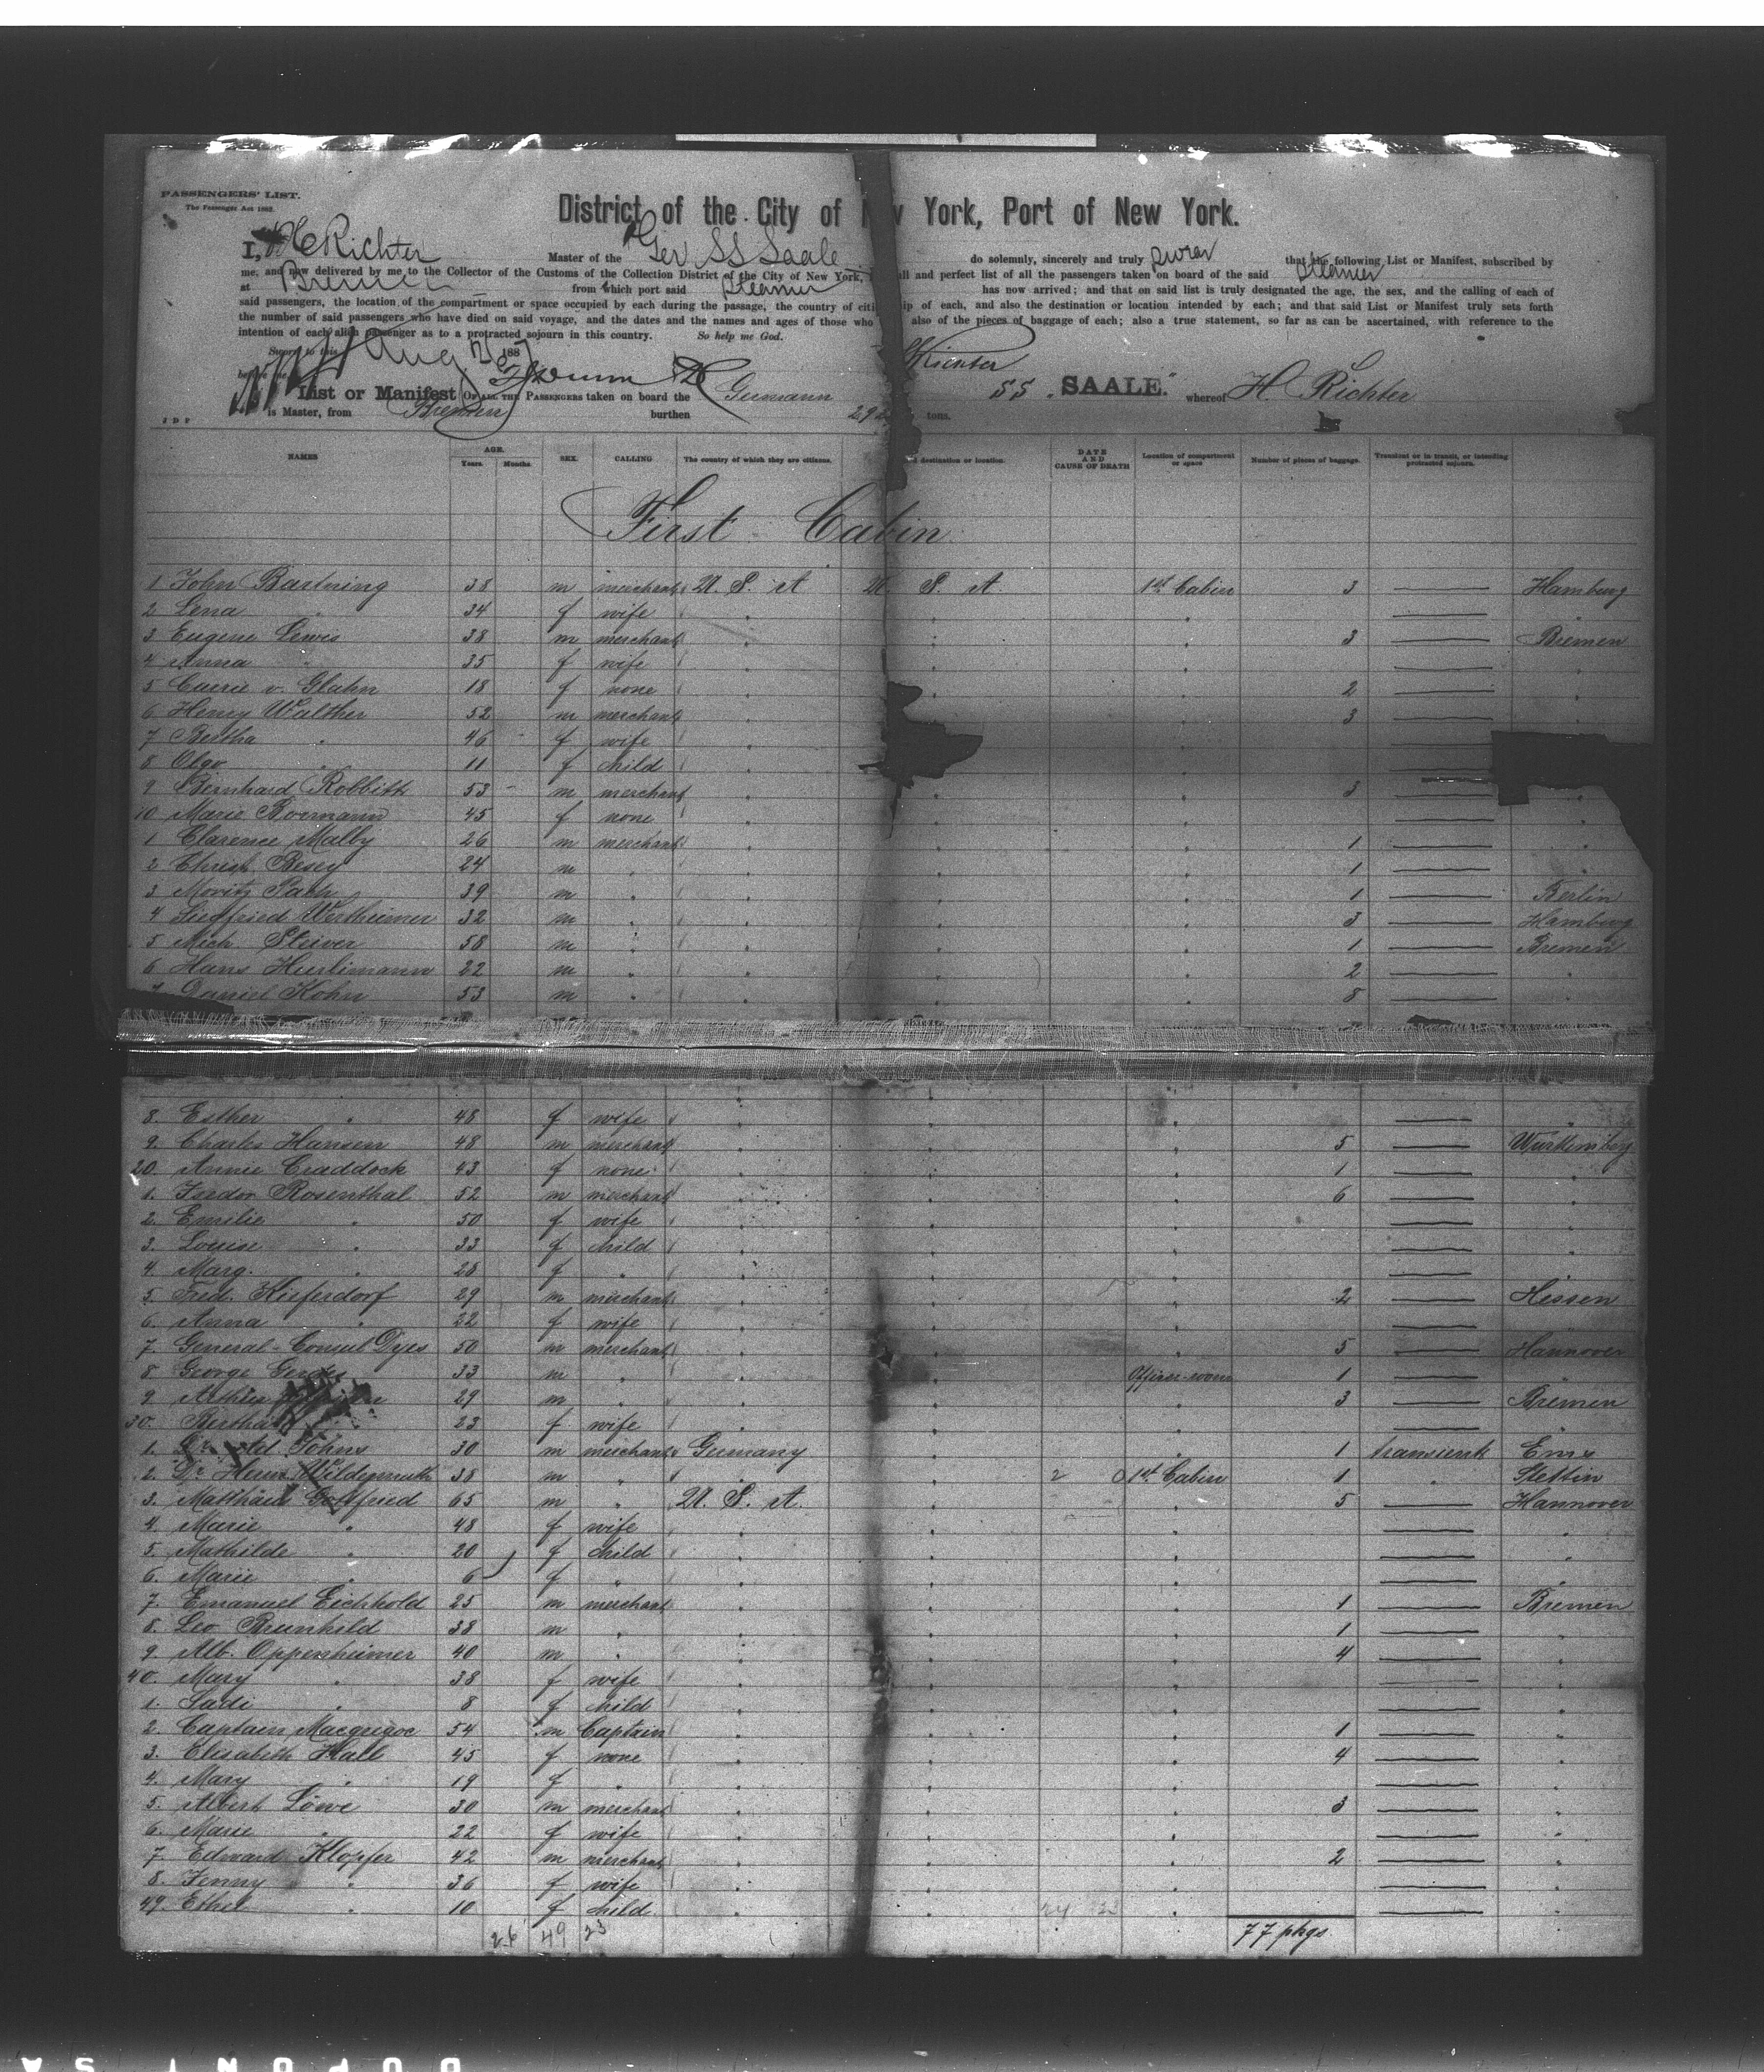 PASSENGERS' LIST.
The Passenger Act 1882.
District of the City of New York, Port of New York.
I, H Richter Master of the Ger SS Saale do solemnly, sincerely and truly swear that the following List or Manifest, subscribed by
me, and now delivered by me to the Collector of the Customs of the Collection District of the City of New York, ll and perfect list of all the passengers taken on board of the said steamer
at Bremen from which port said steamer has now arrived; and that on said list is truly designated the age, the sex, and the calling of each of
said passengers, the location of the compartment or space occupied by each during the passage, the country of citi ip of each, and also the destination or location intended by each; and that said List or Manifest truly sets forth
the number of said passengers who have died on said voyage, and the dates and the names and ages of those who also of the pieces of baggage of each; also a true statement, so far as can be ascertained, with reference to the
intention of each alien passenger as to a protracted sojourn in this country. So help me God.
Sworn to this Aug 188
before me H Richter
List or Manifest OF ALL THE PASSENGERS taken on board the German SS „SAALE" whereof H. Richter
is Master, from Bremen burthen 29 tons.
J D P
NAMES AGE. Years. Months. SEX. CALLING The country of which they are citizens. d destination or location. DATE AND CAUSE OF DEATH Location of compartment or space Number of pieces of baggage. Transient or in transit, or intending protracted sojourn.
First Cabin
1 John Bartning 38 m merchant U. S. A U. S. A. 1st Cabin 3 — Hamburg
2 Lena " 34 f wife " " " — "
3 Eugene Lewis 38 m merchant " " " 3 — Bremen
4 Anna " 35 f wife " " " — "
5 v. Glahn 18 f none " " " 2 — "
6 Henry Walther 52 m merchant " " 3 —
7 Bertha " 46 f wife " " " —
8 Olga " 11 f child " " " —
9 Bernhard Robbitt 53 m merchant " " " 3 — "
10 Marie Bormann 45 f none " " " — "
1 Clarence Malby 26 m merchant " " " 1 — "
2 Christ. Besey 24 m " " " " 1 — "
3 Moritz Pach 39 m " " " " 1 — Berlin
4 Siegfried Wertheimer 32 m " " " " 3 — Hamburg
5 Mich. Steiver 58 m " " " " 1 — Bremen
6 Hans Hurlimann 22 m " " " " 2 — "
7 Daniel Kohn 53 m " " " " 8 — "
8. Esther " 48 f wife " " " — "
9. Charles Hansen 48 m merchant " " " 5 — Wurtemberg
20. Annie Craddock 43 f none " " " 1 — "
1. Isedor Rosenthal 52 m merchant " " " 6 — "
2. Emilie " 50 f wife " " " — "
3. Louise " 33 f child " " " — "
4. Marg. " 28 f " " " " —
5. Fred. Kiefersdorf 29 m merchant " " " 2 — Hessen
6. Anna " 22 f wife " " " — "
7. General-Consul Dyes 50 m merchant " " " 5 — Hannover
8 George 33 m " " " Officer-room 1 — "
9 29 m " " " " 3 — Bremen
30. Bertha 23 f wife " " " — "
1. Johns 30 m merchant Germany " " 1 transient Ems
2. Dr. Wildermuth 38 m " " " 2 1st Cabin 1 " Stettin
3. Gottfried 65 m " U. S. A. " " 5 — Hannover
4. Marie " 48 f wife " " " — "
5. Mathilde " 20 f child " " " — "
6. Marie " 6 f " " " " — "
7. Emanuel Eichhold 25 m merchant " " " 1 — Bremen
8. Leo Brunhild 38 m " " " " 1 — "
9. Alb. Oppenheimer 40 m " " " " 4 — "
40. Mary " 38 f wife " " " — "
1. Sadi " 8 f child " " " — "
2. Captain Macgregor 54 m Captain " " " 1 — "
3. Elisabeth Hall 45 f none " " " 4 — "
4. Mary " 19 f " " " " — "
5. Albert Löwe 30 m merchant " " " 3 — "
6. Marie " 22 f wife " " " — "
7. Edward Klopfer 42 m merchant " " " 2 — "
8. Jenny " 36 f wife " " " — "
49. Ethel " 10 f child " " " — "
26 49 23 77 pkgs